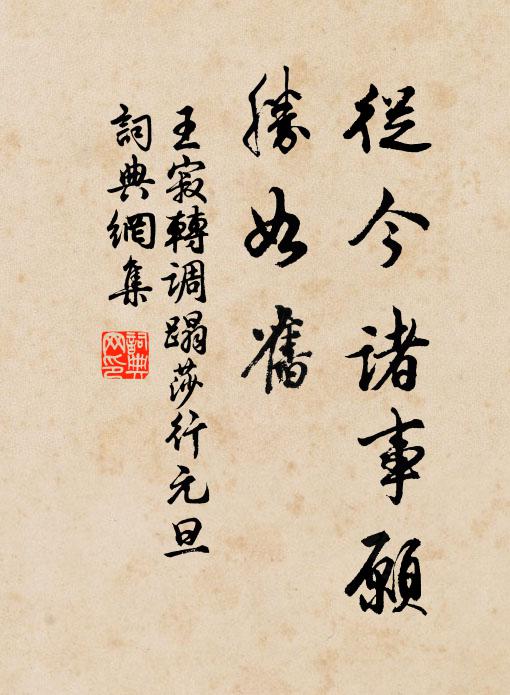 從今諸事願
勝如舊
王寂轉調蹋莎行元旦
詞典網集
詞典
网印